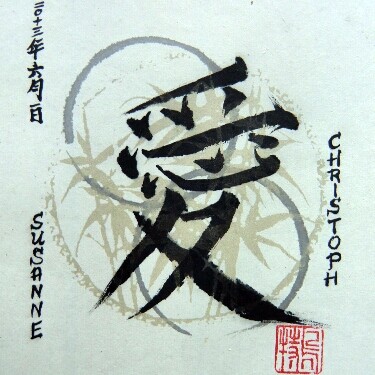 二〇十三年六月一日
愛
SUSANNE
CHRISTOPH